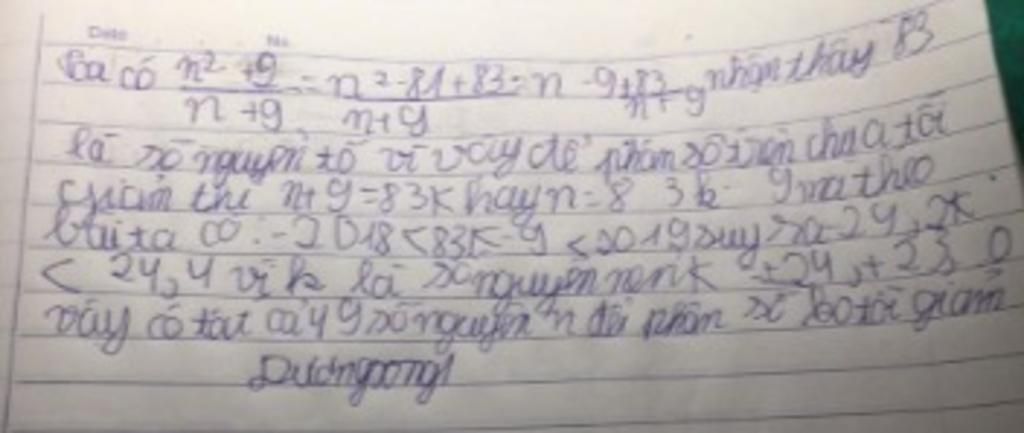 Date No
ta có \frac{n² + 9}{n + 9} = \frac{n² - 81 + 83}{n + 9} = n - 9 + \frac{83}{n + 9} nhận thấy 83
là số nguyên tố vì vậy để phân số trên chưa tối
giản thì n + 9 = 83K hay n = 83k - 9 mà theo
bài ta có: - 2018 < 83K - 9 < 2019 suy ra - 24,2K
< 24,4 vì k là số nguyên nên K ±24, ±23 0
vậy có tất cả 49 số nguyên n để phân số tối giản